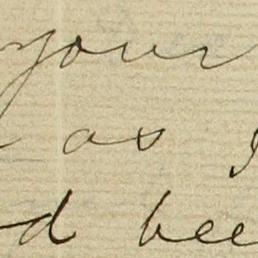 your
as
d bee